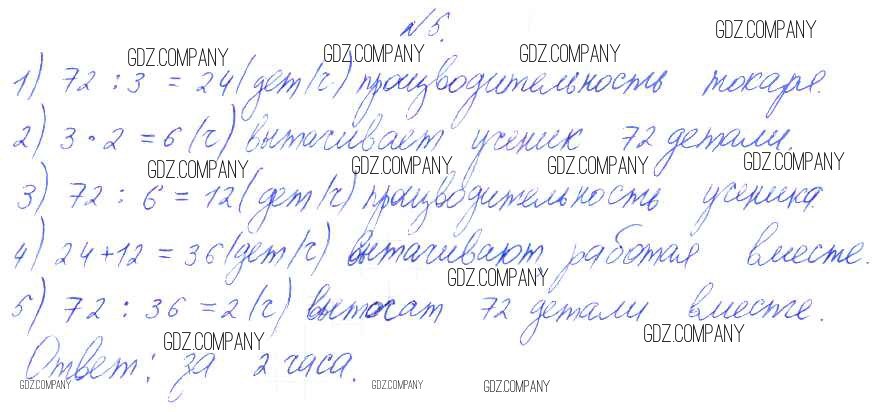 №5.
GDZ.COMPANY
GDZ.COMPANY GDZ.COMPANY GDZ.COMPANY
1) 72 : 3 = 24 (дет/ч) производительность токаря.
2) 3 • 2 = 6 (ч) вытачивает ученик 72 детали.
GDZ.COMPANY GDZ.COMPANY GDZ.COMPANY GDZ.COMPANY
3) 72 : 6 = 12 (дет/ч) производительность ученика.
4) 24 + 12 = 36 (дет/ч) вытачивают работая вместе.
GDZ.COMPANY
5) 72 : 36 = 2 (ч) выточат 72 детали вместе.
GDZ.COMPANY GDZ.COMPANY
Ответ: за 2 часа.
GDZ.COMPANY GDZ.COMPANY GDZ.COMPANY